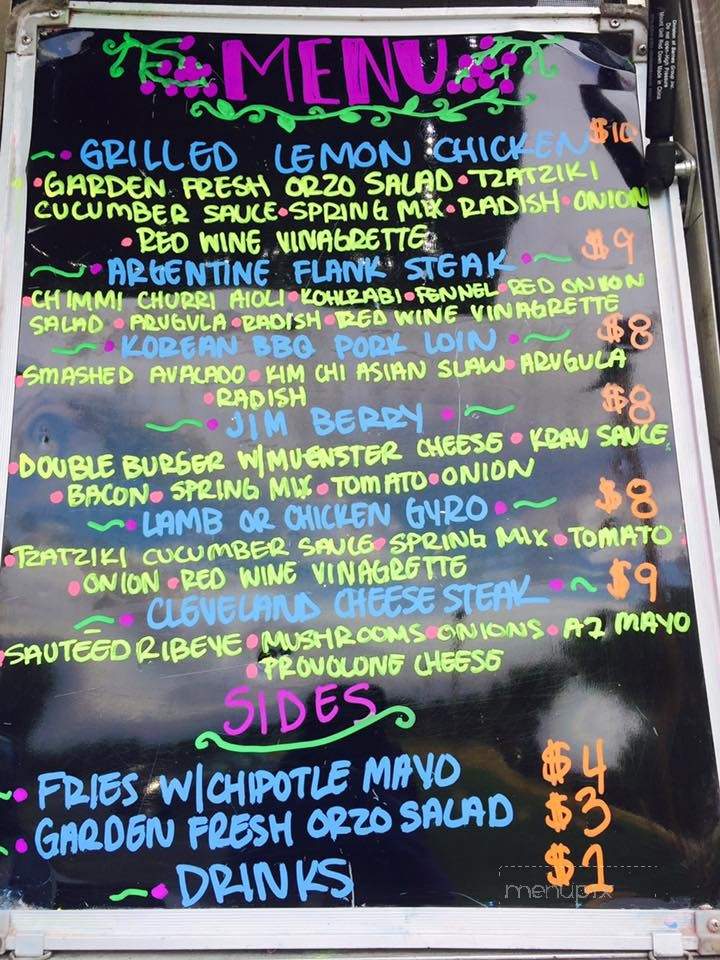 MENU
GRILLED LEMON CHICKEN $10
GARDEN FRESH ORZO SALAD • TZATZIKI
CUCUMBER SAUCE • SPRING MIX • RADISH • ONION
• RED WINE VINAGRETTE
ARGENTINE FLANK STEAK $9
CHIMMI CHURRI AIOLI • KOHLRABI • FENNEL • RED ONION
SALAD • ARUGULA • RADISH • RED WINE VINAGRETTE
KOREAN BBQ PORK LOIN $8
• SMASHED AVACADO • KIM CHI ASIAN SLAW • ARUGULA
• RADISH
JIM BERRY $8
• DOUBLE BURGER W/MUENSTER CHEESE • KRAV SAUCE
• BACON • SPRING MIX • TOMATO • ONION
LAMB OR CHICKEN GYRO $8
• TZATZIKI CUCUMBER SAUCE • SPRING MIX • TOMATO
• ONION • RED WINE VINAGRETTE
CLEVELAND CHEESE STEAK $9
SAUTEED RIBEYE • MUSHROOMS • ONIONS • A1 MAYO
• PROVOLONE CHEESE
SIDES
• FRIES W/CHIPOTLE MAYO $4
• GARDEN FRESH ORZO SALAD $3
• DRINKS $1
menupix